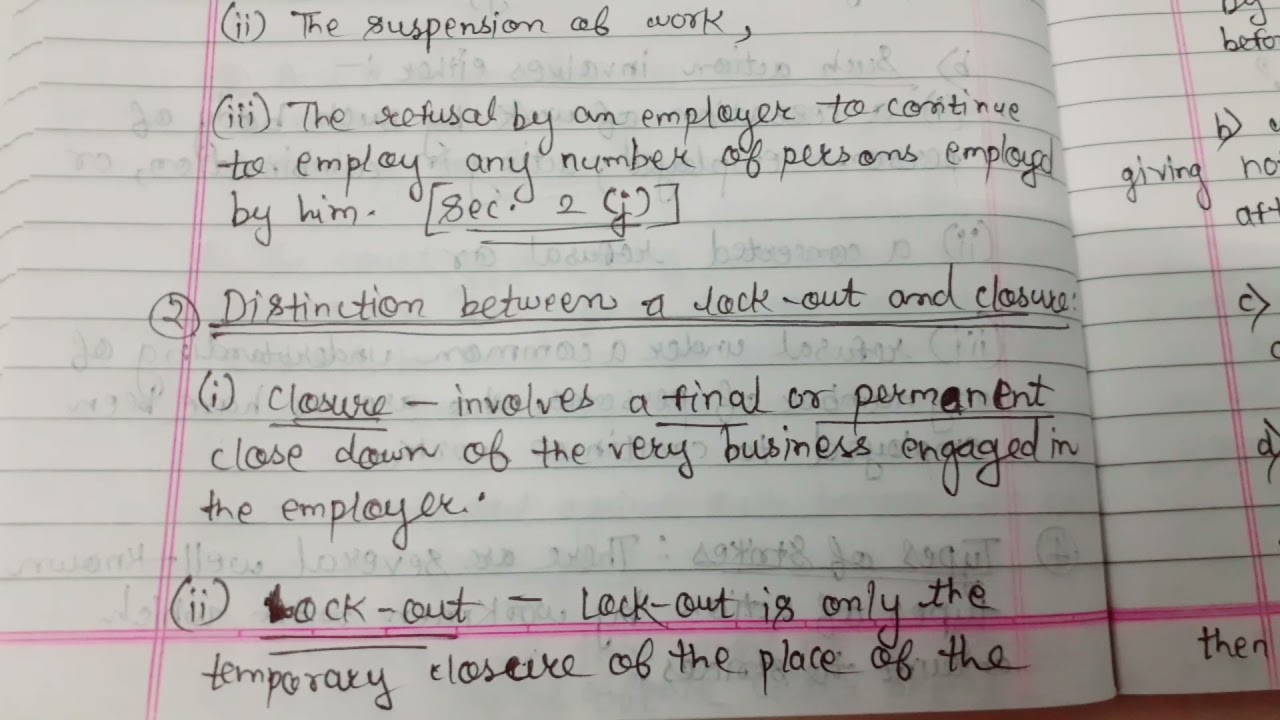 (ii) The suspension of work,
(iii). The refusal by an employer to continue
to employ any number of persons employd
by him. [Sec. 2 (j)]
② Distinction between a lock-out and closure:
(i) Closure – involves a final or permanent
close down of the very business engaged in
the employer.
(ii) Lock-out – Lock-out is only the
temporary closure of the place of the
by
befo
b)
giving no
aft
c)
d)
then